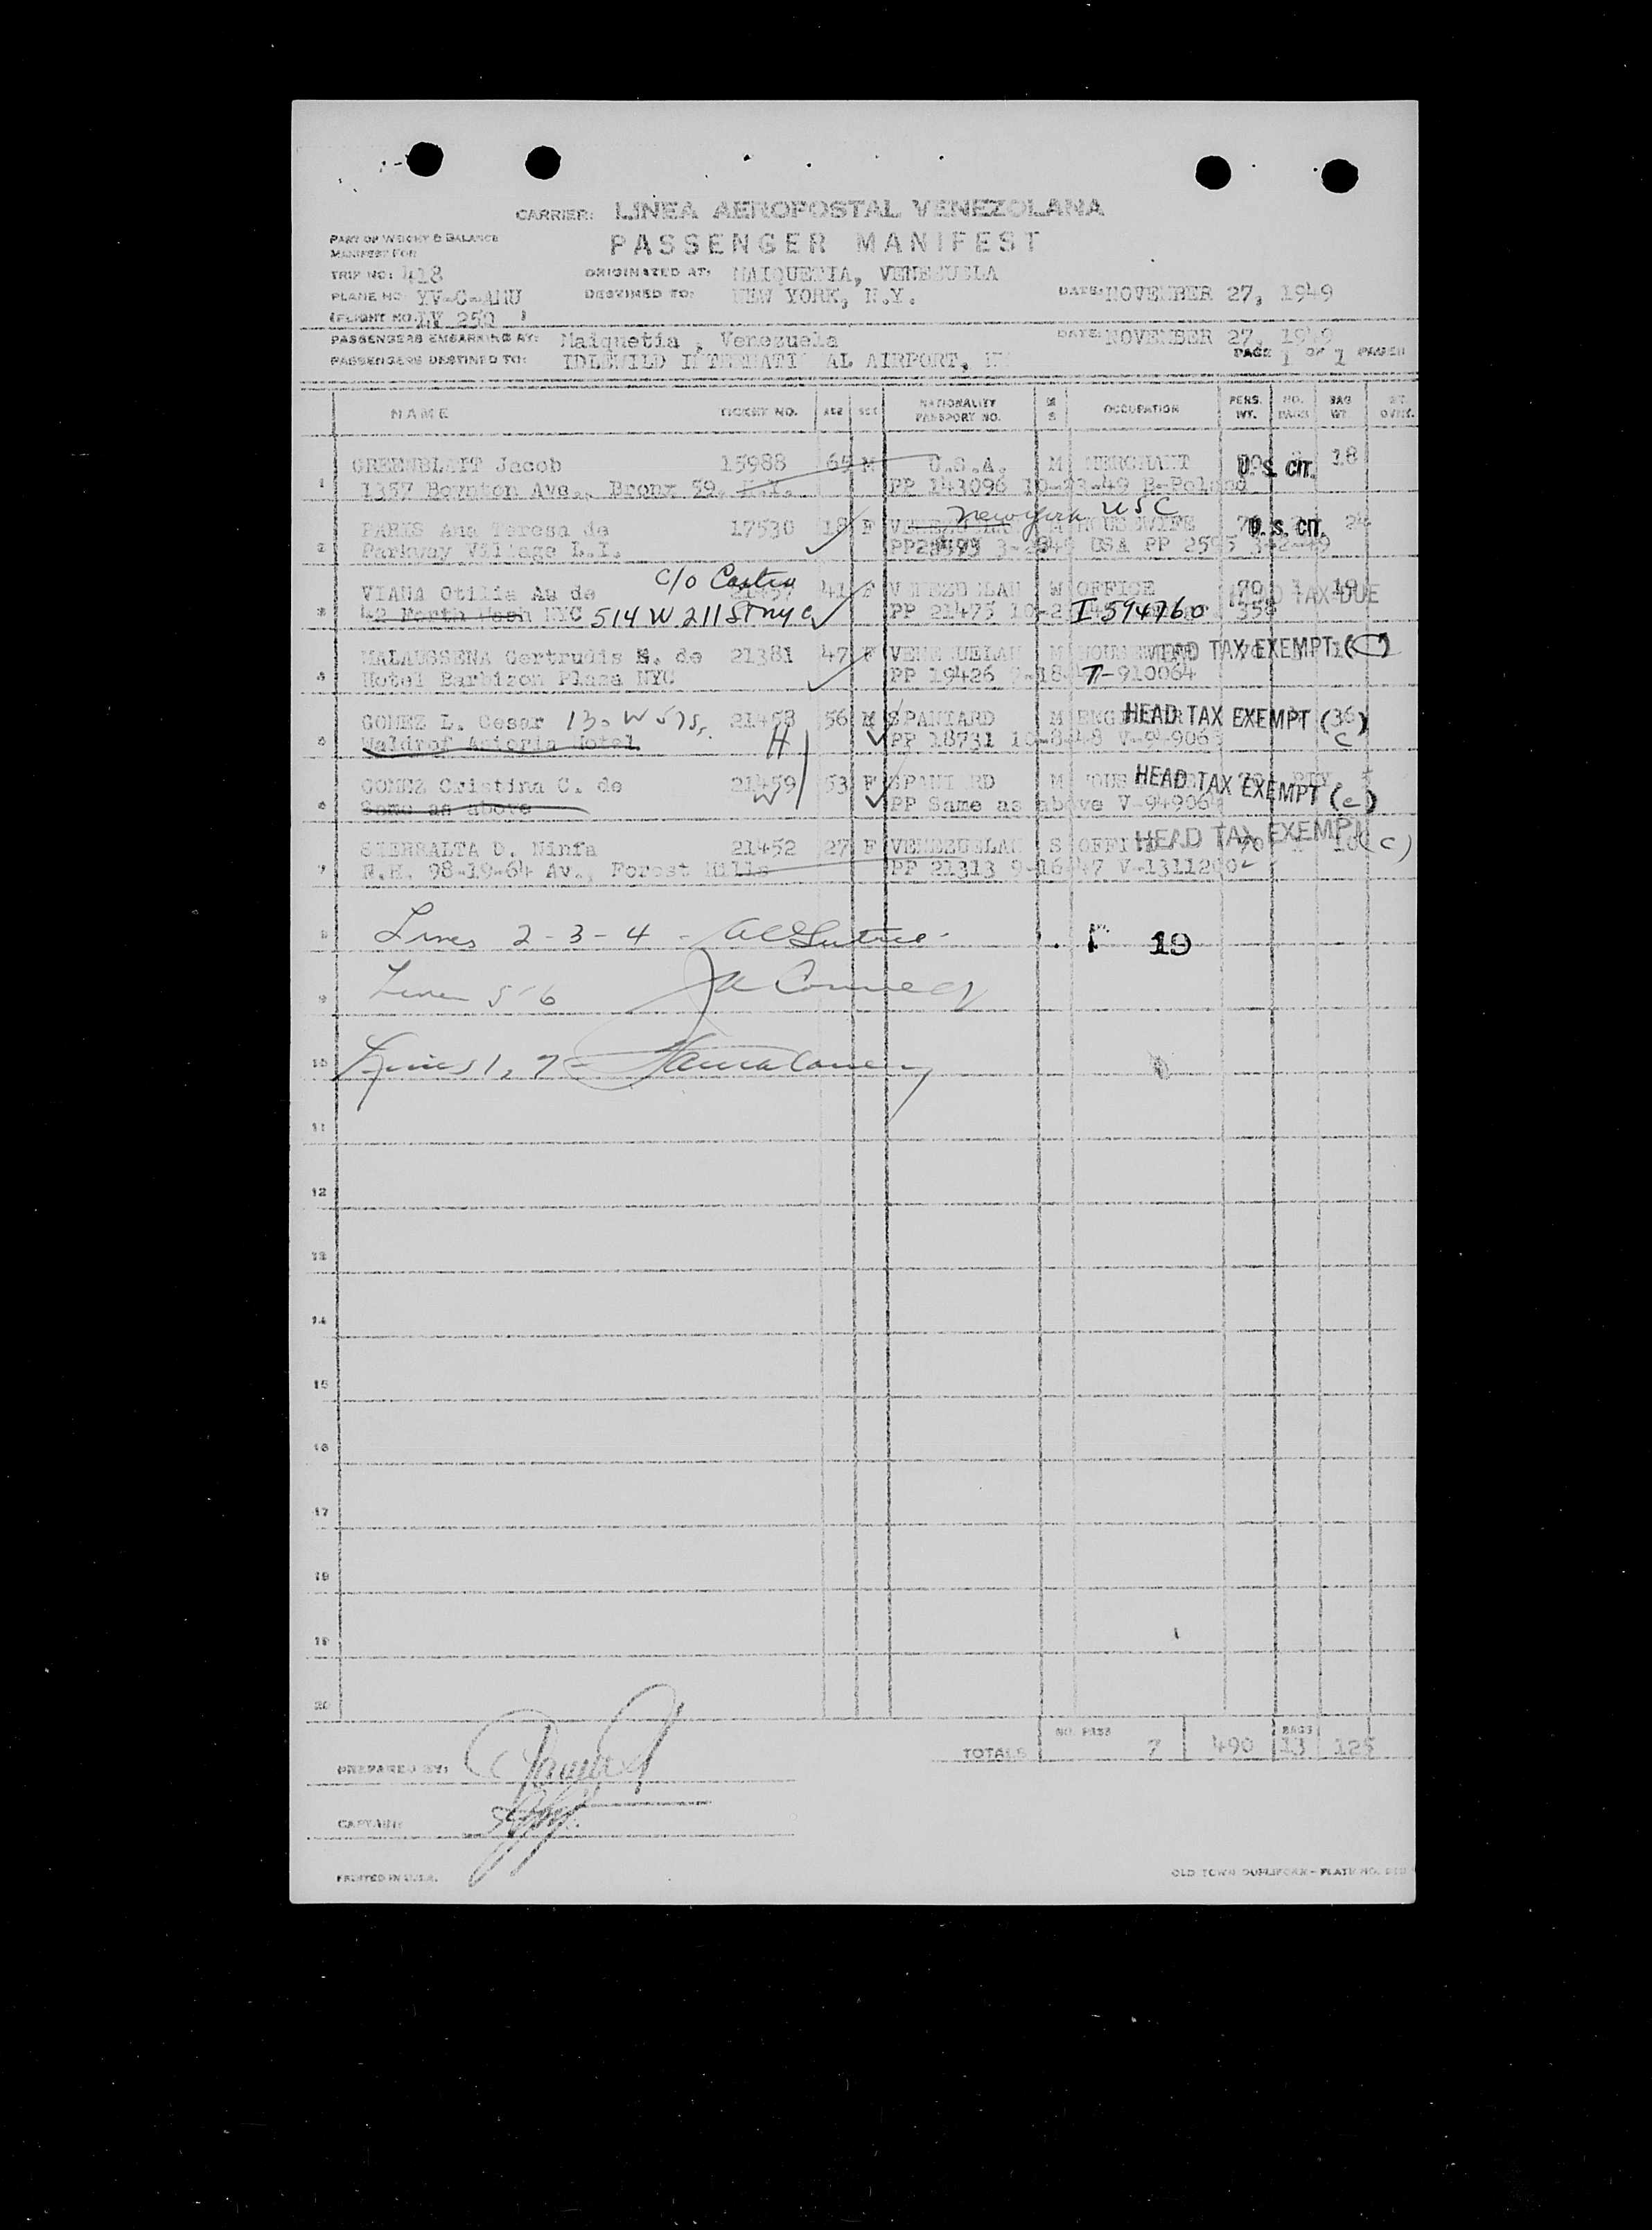 CARRIER: LINEA AEROPOSTAL VENEZOLANA
PART OF WEIGHT & BALANCE
MANIFEST FOR
PASSENGER MANIFEST
TRIP NO: 418
ORIGINATED AT: MAIQUETIA, VENEZUELA
PLANE NO: YV-C-AMU
DESTINED TO: NEW YORK, N.Y.
DATE: NOVEMBER 27, 1949
(FLIGHT NO. LV 250 )
PASSENGERS EMBARKING AT: Maiquetia , Venezuela
DATE: NOVEMBER 27, 1949
PASSENGERS DESTINED TO: IDLEWILD INTERNATI AL AIRPORT, NY
PAGE 1 OF 1 PAGES
NAME TICKET NO. AGE SEX NATIONALITY PASSPORT NO. M S OCCUPATION PERS. WT. NO. BAGS BAG WT. ST. OVNT.
1 GREENBLATT Jacob 15988 65 M U.S.A. M MERCHANT U.S. CIT. 18
1357 Boynton Ave., Bronx 59, N.Y. PP 143096 10-23-49 B-Poland
New York USC
2 PARIS Ana Teresa de 17530 18 F M HOUSEWIFE 70 U.S. CIT. 24
Parkway Village L.I. USA PP 3-2-49
c/o Castro
3 VIANA Otilia Au de 21457 41 F VENEZUELAN W OFFICE 70 1 19 HEAD TAX DUE
42 North Wash NYC 514 W 211 St nyc PP 21475 I-594760
4 MALAUSSENA Gertrudis de 21381 47 F VENEZUELAN M HOUSEWIFE HEAD TAX EXEMPT (C)
Hotel Barbizon Plaza NYC PP 19426 T-910064
5 GOMEZ L. Cesar 130 W 57 St. 21458 56 M SPANIARD M HEAD TAX EXEMPT (36)
Waldrof Astoria Hotel H PP 18731 10-8-48 C
6 GOMEZ Cristina C. de 21459 53 F SPANIARD M HEAD TAX EXEMPT (c)
Same as above W PP Same as above
7 SIERRALTA D. Ninfa 21452 27 F VENEZUELAN S OFFICE HEAD TAX EXEMPT (C)
98-19-64 Av., Forest Hills PP 21313 9-16-47
8 Lines 2-3-4 - F 19
9 Lines 5-6
10 Lines 1, 7 -
11
12
13
14
15
16
17
18
19
20
TOTALS NO. PASS 7 490 BAGS 13 125
PREPARED BY:
CAPTAIN:
PRINTED IN U.S.A.
OLD TOWN DUPLIFORM - PLATE NO.